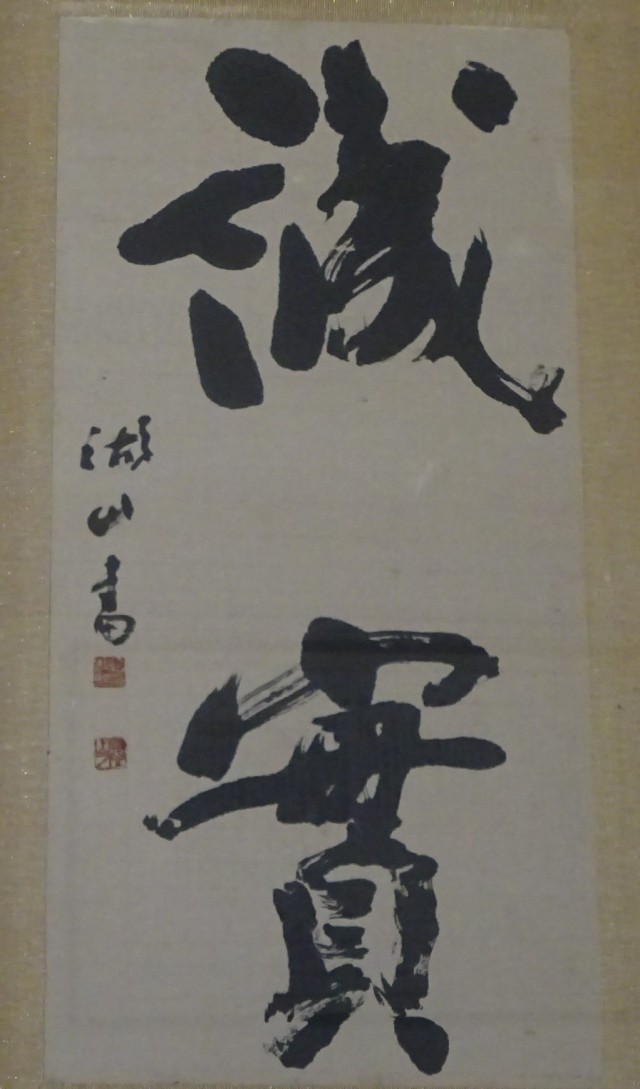 誠
實
湖山書